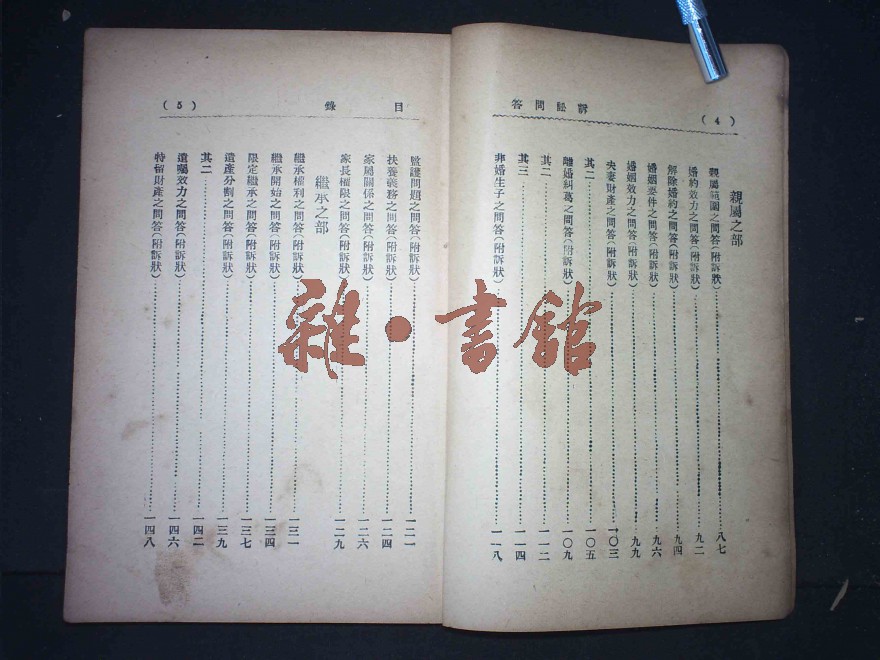 訴訟問答
(4)
親屬之部
親屬範圍之問答(附訴狀)……八七
婚約效力之問答(附訴狀)……九二
解除婚約之問答(附訴狀)……九四
婚姻要件之問答(附訴狀)……九六
婚姻效力之問答(附訴狀)……九九
夫妻財產之問答(附訴狀)……一〇三
其二……一〇五
離婚糾葛之問答(附訴狀)……一〇九
其二……一一二
其三……一一四
非婚生子之問答(附訴狀)……一一八
目錄
(5)
監護問題之問答(附訴狀)……一二一
扶養義務之問答(附訴狀)……一二四
家屬關係之問答(附訴狀)……一二六
家長權限之問答(附訴狀)……一二九
繼承之部
繼承權利之問答(附訴狀)……一三一
繼承開始之問答(附訴狀)……一三四
限定繼承之問答(附訴狀)……一三七
遺產分割之問答(附訴狀)……一三九
其二……一四二
遺囑效力之問答(附訴狀)……一四六
特留財產之問答(附訴狀)……一四八
雜·書館